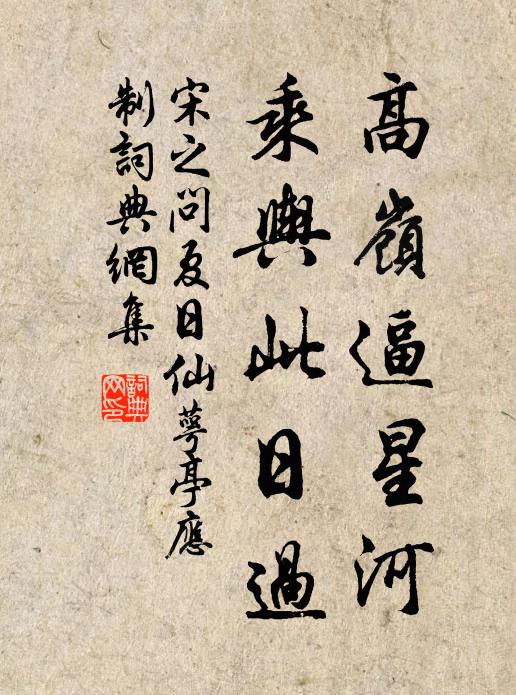 高嶺逼星河
乘輿此日過
宋之问夏日仙萼亭應
制詞典網集
詞典网印